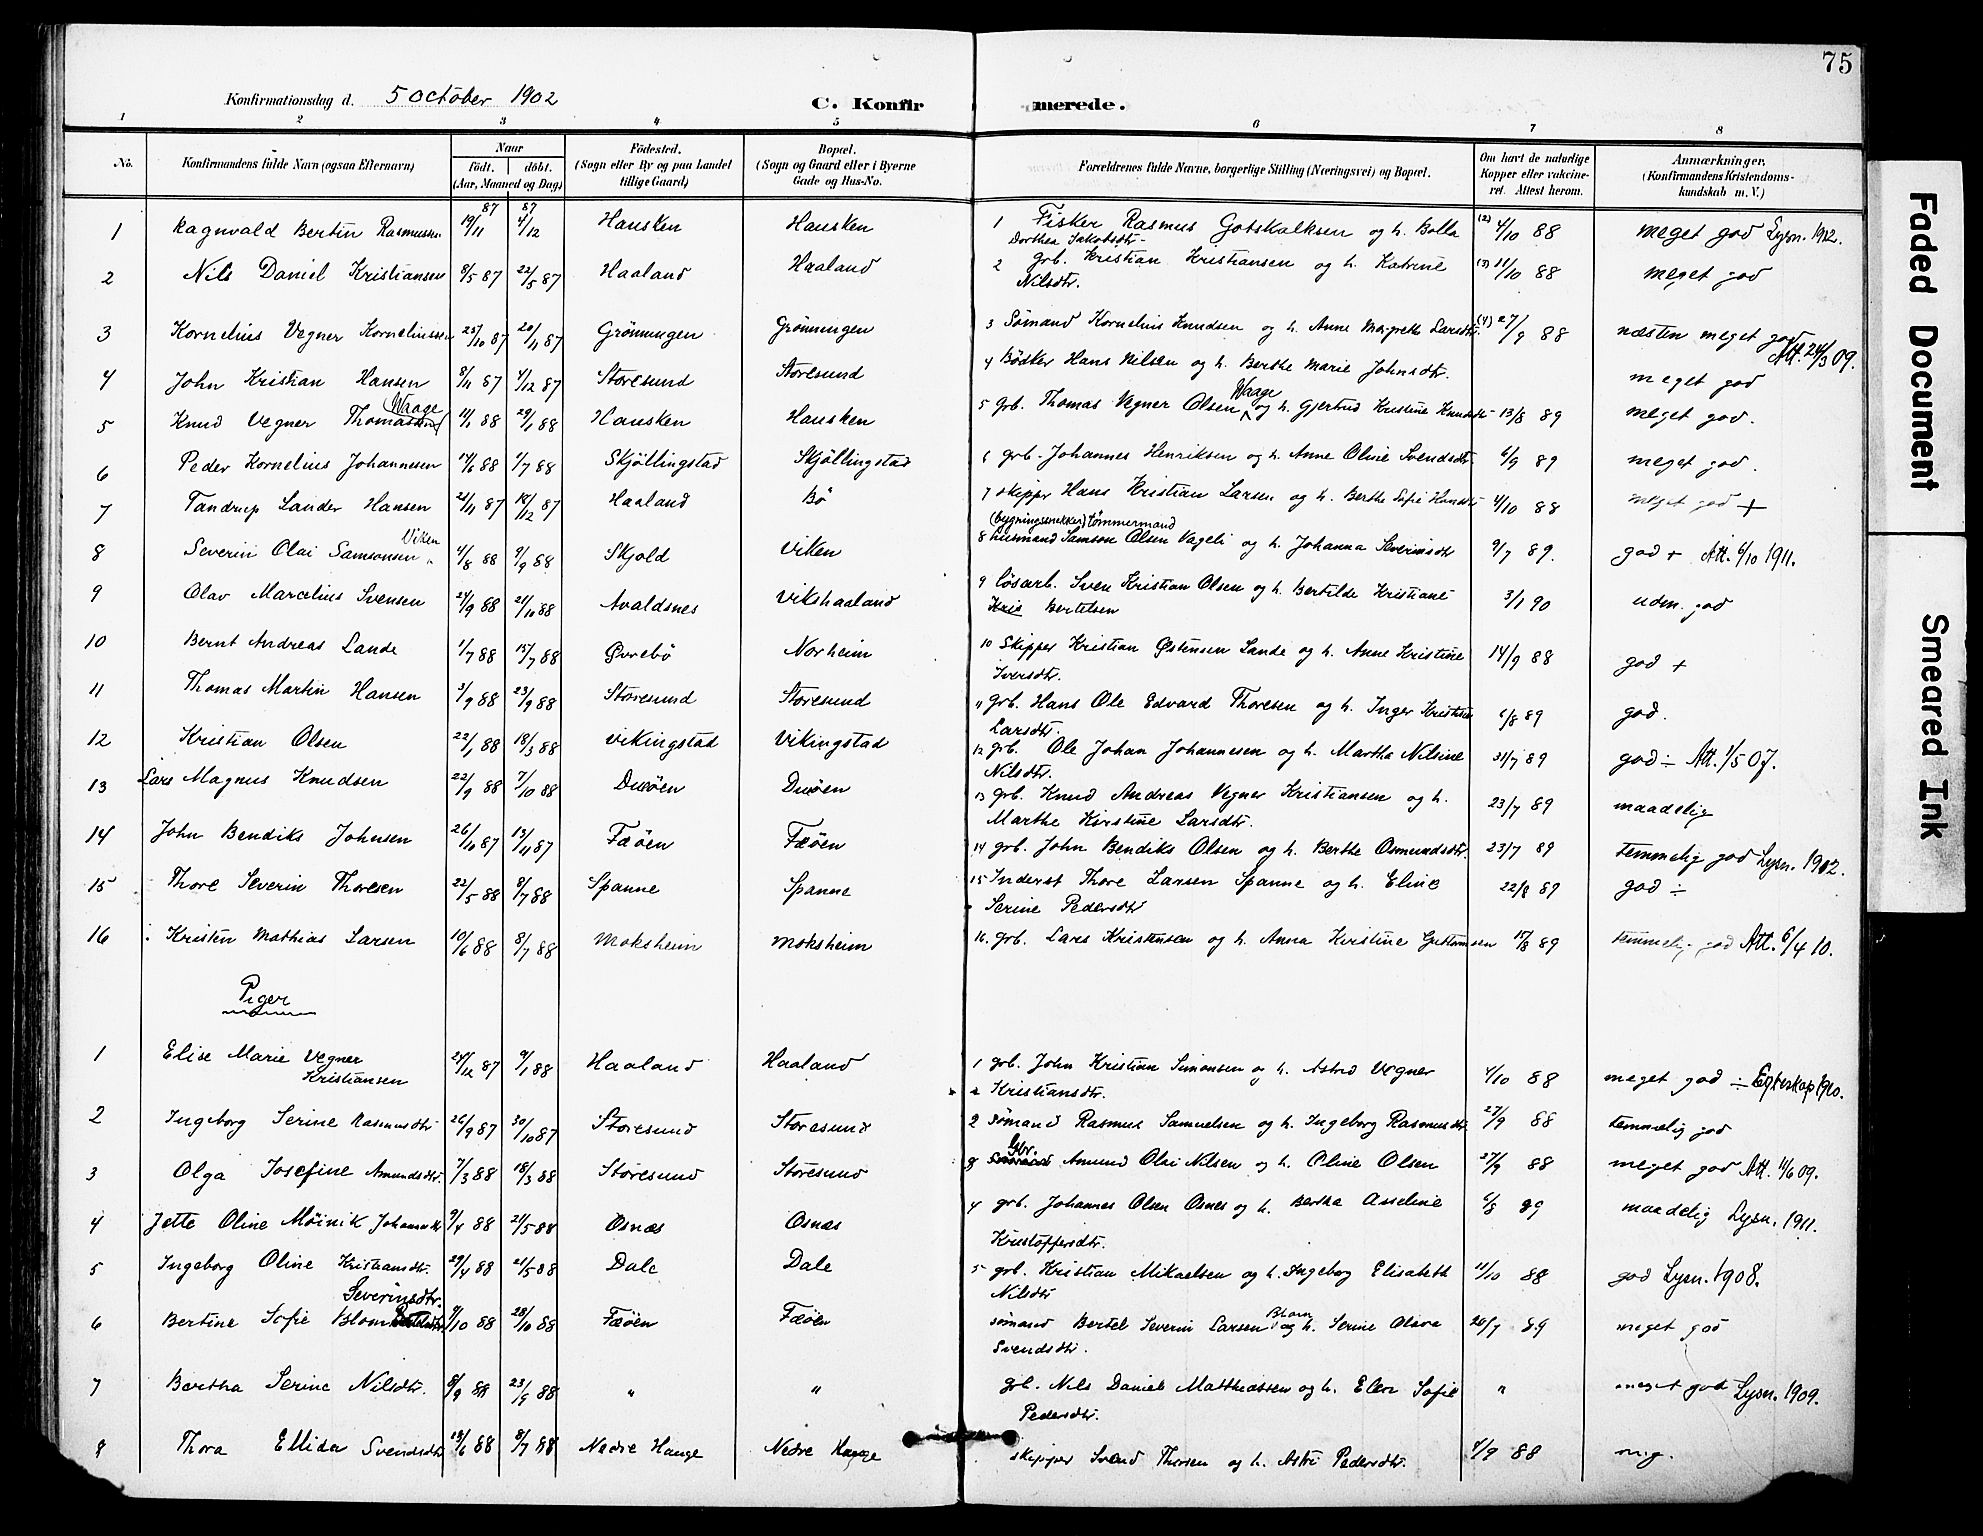 75
Konfirmationsdag d. 5 October 1902
C. Konfirmerede.
1 2 3 4 5 6 7 8
No.
Konfirmandens fulde Navn (ogsaa Efternavn)
Naar
født. døbt.
(Aar, Maaned og Dag)
Fødested.
(Sogn eller By og paa Landet
tillige Gaard)
Bopæl.
(Sogn og Gaard eller i Byerne
Gade og Hus-No.
Forældrenes fulde Navne, borgerlige Stilling (Næringsvei) og Bopæl.
Om havt de naturlige
Kopper eller vaccine-
ret. Attest herom.
Anmærkninger.
(Konfirmandens Kristendoms-
kundskab m. V.)
1 Ragnvald Bertin Rasmussen 19/11 87 4/12 87 Hausken Hausken 1 Fisker Rasmus Gotskalksen og h. Bolla (2) 4/10 88 meget god Lysn. 1912.
Dorthea Jakobsdtr.
2 Nils Daniel Kristiansen 8/5 87 22/5 87 Haaland Haaland 2 grb. Kristian Kristiansen og h. Katrine (3) 11/10 88 meget god
Nilsdtr.
3 Kornelius Vegner Korneliussen 25/10 87 20/11 87 Grönningen Grönningen 3 Sømand Kornelius Knudsen og h. Anne Margrethe Larsdtr. (4) 27/9 88 næsten meget god Att. 24/3 09.
4 John Kristian Hansen 8/11 87 4/12 87 Storesund Storesund 4 Bødker Hans Nilsen og h. Berthe Marie Johnsdtr. meget god
Waage Waage
5 Knud Vegner Thomassen 11/1 88 29/1 88 Hausken Hausken 5 grb. Thomas Vegner Olsen og h. Gjertrud Kristine Knudsdtr 13/8 89 meget god.
6 Peder Kornelius Johannesen 17/6 88 1/7 88 Skjöllingstad Skjöllingstad 6 grb. Johannes Henriksen og h. Anne Oline Svendsdtr. 6/9 89 meget god.
7 Tandrup Lauder Hansen 21/11 87 18/12 87 Haaland Bö 7 skipper Hans Kristian Larsen og h. Berthe Sofie Hansdtr 4/10 88 meget god +
Viken (bygningssnekker) tømmermand
8 Severin Olai Samsonsen 4/8 88 9/9 88 Skjold Viken 8 husmand Samson Olsen Vageli og h. Johanna Severinsdtr 9/7 89. god + Att. 6/10 1911.
9 Olav Marcelius Svensen 24/9 88 21/10 88 Avaldsnes Vikshaaland 9 løsarb. Sven Kristian Olsen og h. Bertilde Kristiane 3/1 90 udm. god
Kris Bertelsen
10 Bernt Andreas Lande 1/7 88 15/7 88 Øvrebö Norheim 10 Skipper Kristian Østensen Lande og h. Anne Kristine 14/9 88 god +
Iversdtr.
11 Thomas Martin Hansen 3/9 88 23/9 88 Storesund Storesund 11 grb. Hans Ole Edvard Thoresen og h. Inger Kristine 6/8 89 god.
Larsdtr.
12 Kristian Olsen 22/1 88 18/3 88 Vikingstad Vikingstad 12 grb. Ole Johan Johannesen og h. Martha Nilsine 31/7 89 god ÷ Att. 1/5 07.
Nilsdtr.
13 Lars Magnus Knudsen 22/9 88 7/10 88 Duøen Duøen 13 grb. Knud Andreas Vegner Kristiansen og h. 23/7 89 maadelig
Marthe Kirstine Larsdtr.
14 John Bendiks Johnsen 26/10 87 13/11 87 Fæøen Fæøen 14 grb. John Bendiks Olsen og h. Berthe Osmundsdtr. 23/7 89 temmelig god Lysn. 1912.
15 Thore Severin Thoresen 22/5 88 8/7 88 Spanne Spanne 15 Inderst Thore Larsen Spanne og h. Eline 22/8 89 god ÷
Serine Pedersdtr
16 Kristen Mathias Larsen 10/6 88 8/7 88 Moksheim Moksheim 16. grb. Lars Kristensen og h. Anna Kirstine 17/8 89 temmelig god Att. 6/4 10.
Piger
1 Elise Marie Vegner 24/12 87 9/1 88 Haaland Haaland 1 grb. John Kristian Simonsen og h. Astrid Vegner 4/10 88 meget god ÷ Egteskap 1910.
Kristiansen Kristiansdtr.
2 Ingeborg Serine Rasmusdtr 26/9 87 30/10 87 Storesund Storesund 2 sømand Rasmus Samuelsen og h. Ingeborg Rasmusdtr 27/9 88 temmelig god
3 Olga Josefine Amundsdtr. 7/3 88 18/3 88 Storesund Storesund 3 Gbr. Amund Olai Nilsen og h. Oline Olsen 27/9 88 meget god Att. 11/6 09.
4 Jette Oline Möinik 9/4 88 21/5 88 Osnæs Osnæs 4 grb. Johannes Olsen Osnes og h. Bertha Asseline 6/8 89 maadelig Lysn. 1911.
Kristoffersdtr.
5 Ingeborg Oline Kristiansdtr. 29/4 88 21/5 88 Dale Dale 5 grb. Kristian Mikaelsen og h. Ingeborg Elisabeth 11/10 88 god Lysn. 1908.
Nilsdtr
Severinsdtr. Blom
6 Bertine Sofie Blom 9/10 88 28/10 88 Fæøen Fæøen sømand Bertel Severin Larsen og h. Serine Olava 26/7 89 meget god
Svendsdtr.
7 Bertha Serine Nilsdtr. 8/9 88 23/9 88 " " grb. Nils Daniel Matthiassen og h. Elen Sofie " meget god Lysn. 1909.
Pedersdtr.
8 Thora Ellida Svendsdtr 13/6 88 8/7 88 Nedre Hauge Nedre Hauge skipper Svend Thorsen og h. Astri Pedersdtr. 4/9 88 mg.
Faded Document
Smeared Ink